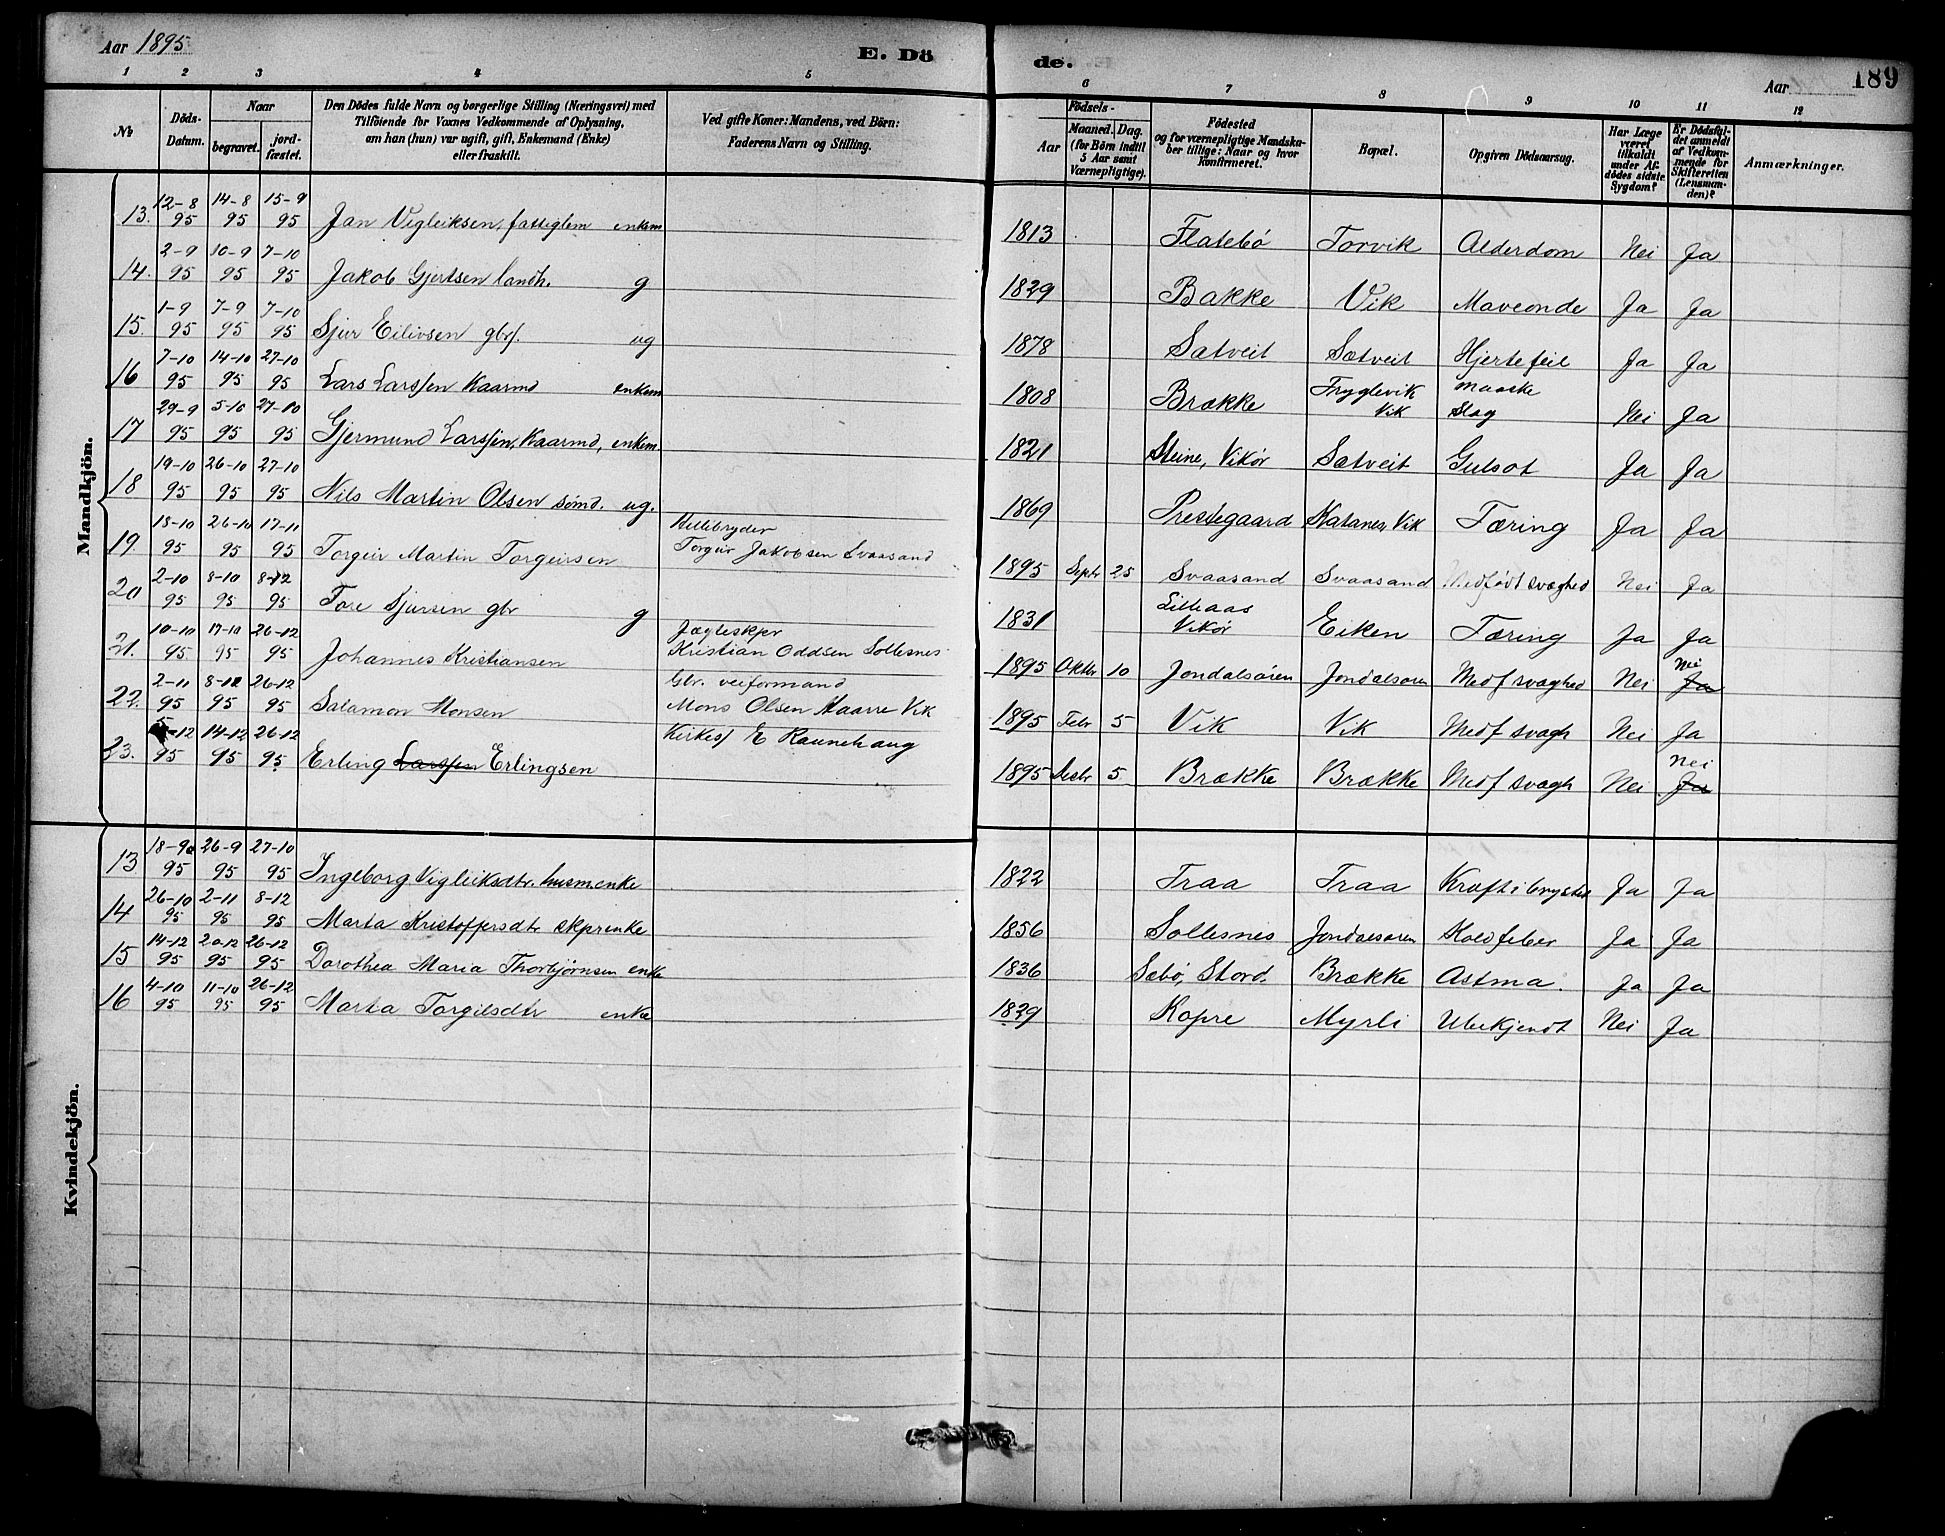 Aar 1895
E. Dö
de.
Aar
189
1 2 3 4 5 6 7 8 9 10 11 12
№
Döds-Datum.
Naar
begravet.
jord-fæstet.
Den Dödes fulde Navn og borgerlige Stilling (Næringsvei) med Tilföiende for Voxnes Vedkommende af Oplysning, om han (hun) var ugift, gift, Enkemand (Enke) eller fraskilt.
Ved gifte Koner: Mandens, ved Börn: Faderens Navn og Stilling.
Födsels-
Aar
Maaned. Dag.
(for Börn indtil 5 Aar samt Værnepligtige).
Födested og for værnepligtige Mandskaber tillige: Naar og hvor konfirmeret.
Bopæl.
Opgiven Dödsaarsag.
Har Læge været tilkaldt under Afdödes sidste Sygdom?
Er Dödsfaldet anmeldt af Vedkommende for Skifteretten (Lensmanden)?
Anmærkninger.
Mandkjön.
13. 12-8 95 14-8 95 15-9 95 Jan Vigleiksen, fattiglem enkem 1813 Flatebó Torvik Alderdom Nei Ja
14. 2-9 95 10-9 95 7-10 95 Jakob Gjertsen landh. g 1829 Bakke Vik Maveonde Ja Ja
15. 1-9 95 7-9 95 7-10 95 Sjur Eilivsen gbr/. ug 1878 Sætveit Sætveit Hjertefeil Ja Ja
16 7-10 95 14-10 95 27-10 95 Lars Larssen Kaarmd enkem 1808 Brække Tryglevik Vik Maaske Slag Nei Ja
17 29-9 95 5-10 95 27-10 95 Gjermund Larssen, Kaarmd, enkem. 1821 Steine, Vikór Sætveit Gulsot Ja Ja
18 19-10 95 26-10 95 27-10 95 Nils Martin Olsen sómd. ug. 1869 Prestegaard Katanes, Vik Tæring Ja Ja
19. 18-10 95 26-10 95 17-11 95 Torgeir Martin Torgeirsen Hellebryder Torgeir Jakobsen Svaasand 1895 Septr 25 Svaasand Svaasand Medfódt svaghed Nei Ja
20 2-10 95 8-10 95 8-12 95 Tore Sjursen gbr g 1831 Lilleaas Vikór Eiken Tæring Ja Ja
21. 10-10 95 17-10 95 26-12 95 Johannes Kristiansen Jægteskpr Kristian Oddsen Sollesnes 1895 Oktbr 10 Jondalsóren Jondalsóren Medf svaghed Nei Nei Ja
22. 2-11 95 8-12 95 26-12 95 Salamon Monsen Gbr. veiformand Mons Olsen Aaarre Vik 1895 Febr 5 Vik Vik Medf svagh Nei Ja
23. 5-12 95 14-12 95 26-12 95 Erling Larssen Erlingsen Kirkes/ E Raunehaug 1895 Desbr 5 Brække Brække Medf svagh Nei Nei Ja
Kvindekjön.
13 18-9 95 26-9 95 27-10 95 Ingeborg Vigleiksdtr. husmenke 1822 Traa Traa Kræft i brystet Ja Ja
14 26-10 95 2-11 95 8-12 95 Marta Kristoffersdtr skprenke 1856 Sollesnes Jondalsóren Koldfeber Ja Ja
15 14-12 95 20-12 95 26-12 95 Dorothea Maria Thorbjórnsen enke 1836 Sæbó, Stord. Brække Astma. Ja Ja
16 4-10 95 11-10 95 26-12 95 Marta Torgilsdtr enke 1829 Kopre Myrli Ubekjendt Nei Ja